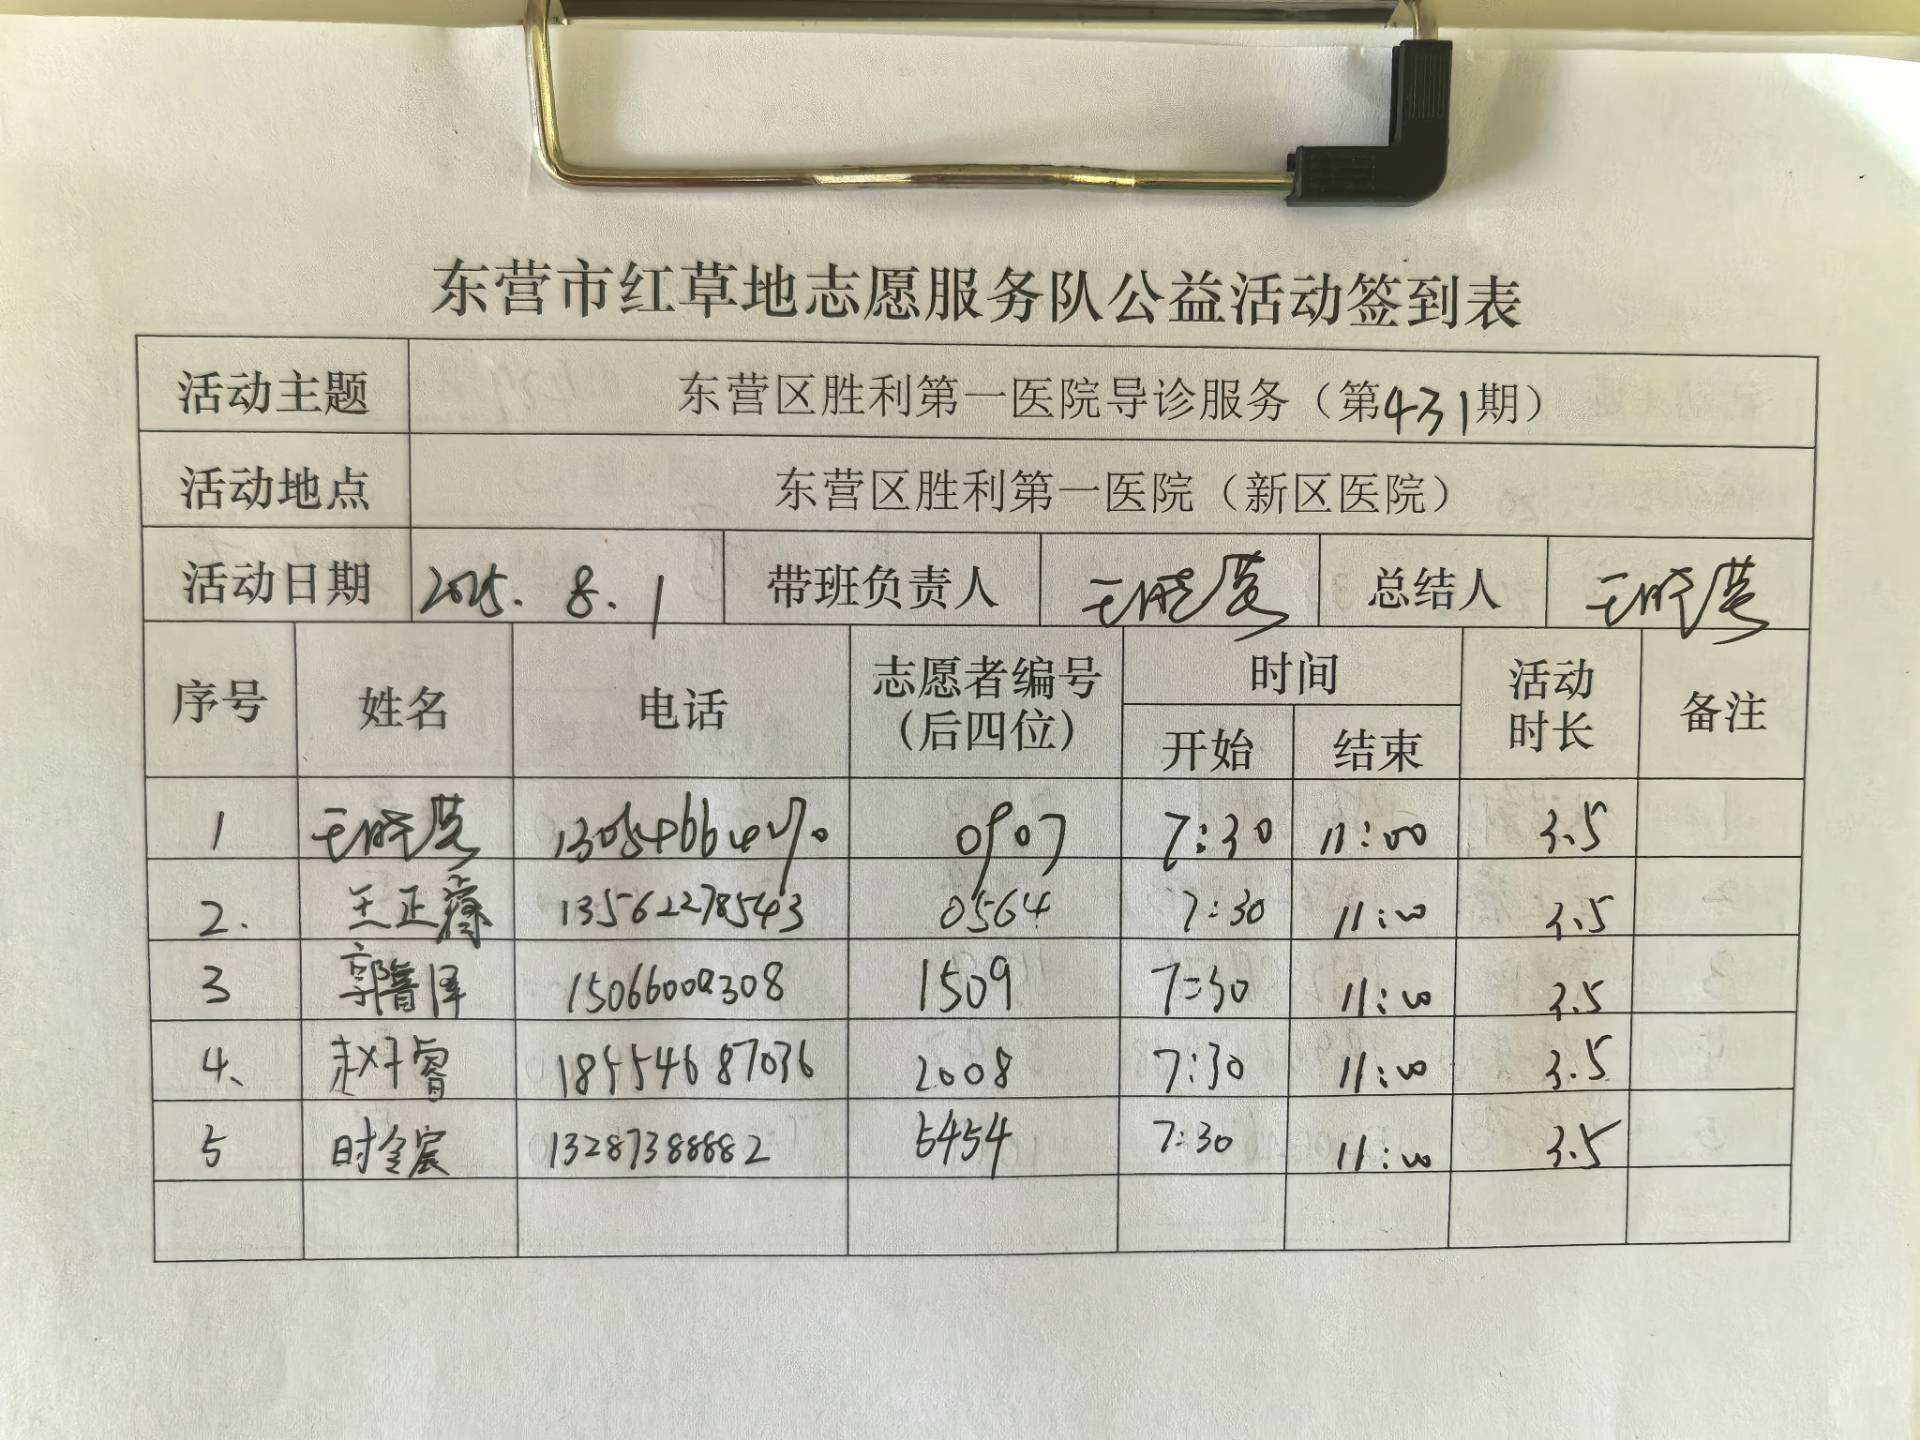 东营市红草地志愿服务队公益活动签到表
活动主题 东营区胜利第一医院导诊服务（第431期）
活动地点 东营区胜利第一医院（新区医院）
活动日期 2025.8.1 带班负责人 王晓 总结人 王晓
序号 姓名 电话 志愿者编号（后四位） 时间 开始 结束 活动时长 备注
1 王晓 0907 7:30 11:00 3.5
2. 王正 13562278543 0564 7:30 11:00 3.5
3 郭晋泽 1509 7:30 11:00 3.5
4、 赵子睿 18554687036 2008 7:30 11:00 3.5
5 时金宸 13287388882 5454 7:30 11:00 3.5